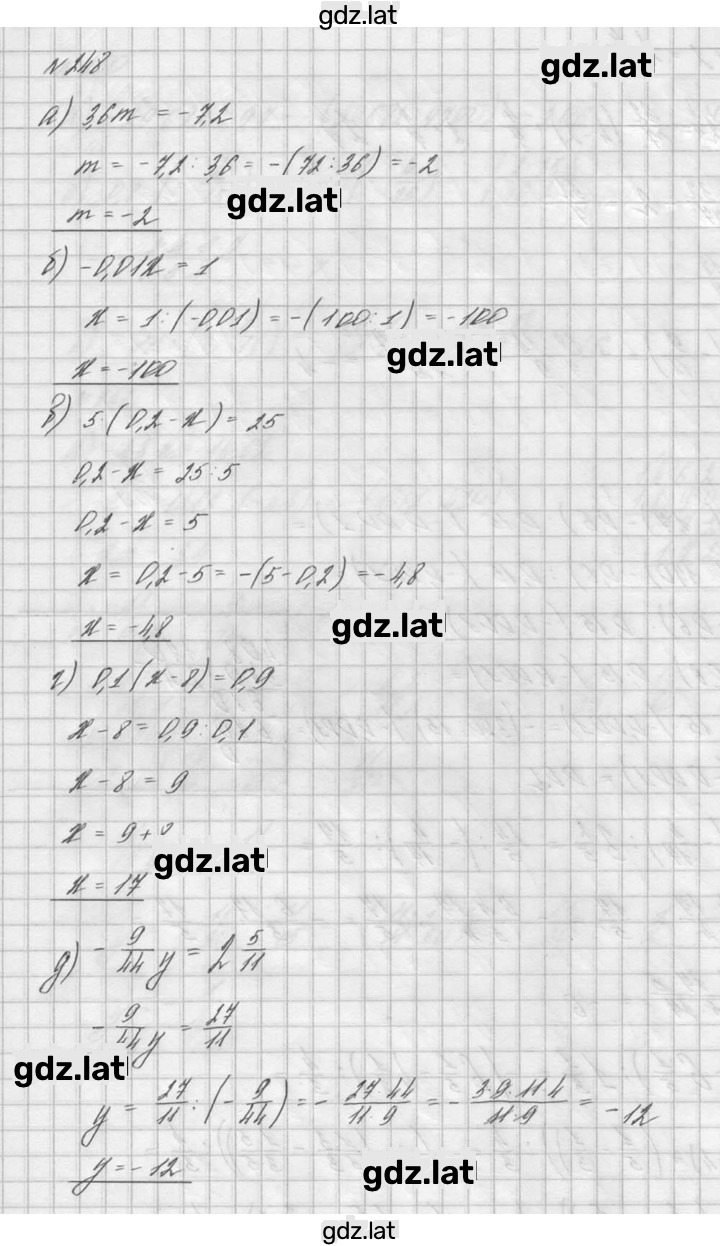 gdz.lat
№248
gdz.lat
а) 3,6m = -7,2
m = -7,2 : 3,6 = -(72:36) = -2
gdz.lat
m = -2
б) -0,01x = 1
x = 1 : (-0,01) = -(100:1) = -100
gdz.lat
x = -100
в) 5·(0,2-x) = 25
0,2-x = 25:5
0,2-x = 5
x = 0,2-5 = -(5-0,2) = -4,8
gdz.lat
x = -4,8
г) 0,1(x-8) = 0,9
x-8 = 0,9:0,1
x-8 = 9
x = 9+
gdz.lat
x = 17
д) -9/44 y = 2 5/11
-9/44 y = 27/11
gdz.lat
y = 27/11 : (-9/44) = - 27·44/11·9 = - 3·9·11·4/11·9 = -12
y = -12
gdz.lat
gdz.lat